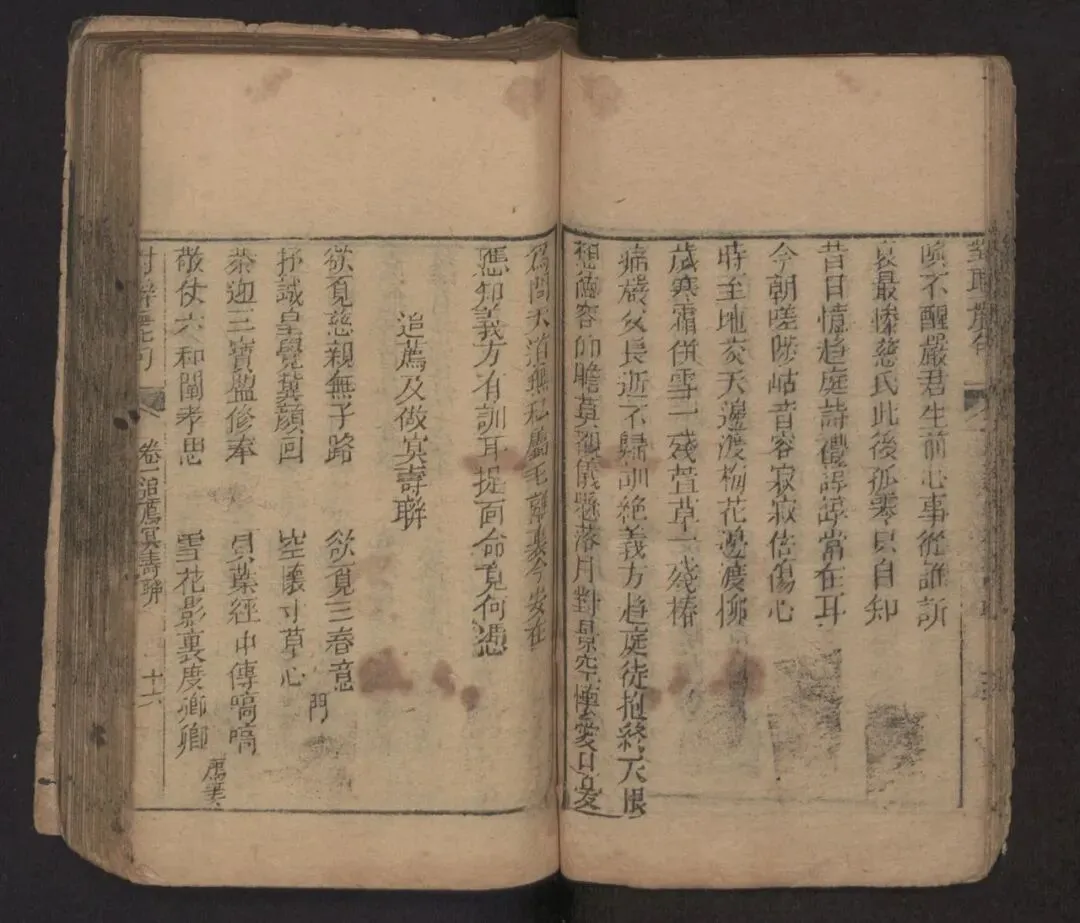 喚不醒嚴君生前心事從誰訴
哀最慘慈氏此後孤零只自知
昔日憶趨庭詩禮諄諄常在耳
今朝嗟陟岵音容寂寂倍傷心
時至地亥天邊渡梅花邊渡柳
歲寒霜併雪一殘萱草一殘椿
痛嚴父長逝不歸訓絕義方趨庭徒抱終天恨
想德容仰瞻莫親儀懸落月對景空懷愛日哀
為問天道無私屬毛離裏今安在
應知義方有訓耳提面命覓何憑
追薦及做冥壽聯
欲覓慈親無子路 欲覓三春意
抒誠皇覺冀顏回 空懷寸草心 門
茶迎三寶盥修奉 貝葉經中傳嗃嗃
敬仗六和闡孝思 雪花影裏度卿卿 薦妻
卷一追薦冥壽聯 十六